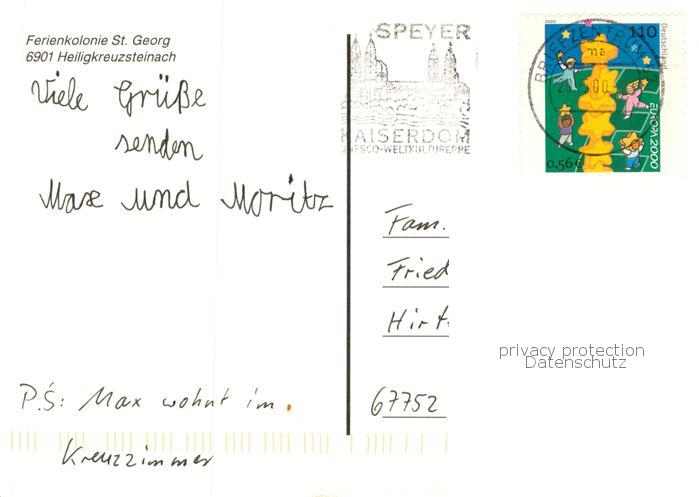 Ferienkolonie St. Georg
6901 Heiligkreuzsteinach
Viele Grüße
senden
Max und Moritz
P.S: Max wohnt im.
Kreuzzimmer
SPEYER
KAISERDOM
UNESCO-WELTKULTURERBE
2000
110
Deutschland
EUROPA 2000
0,56€
BRIEFZENTRUM
Fam.
Fried
Hirt
67752
privacy protection
Datenschutz